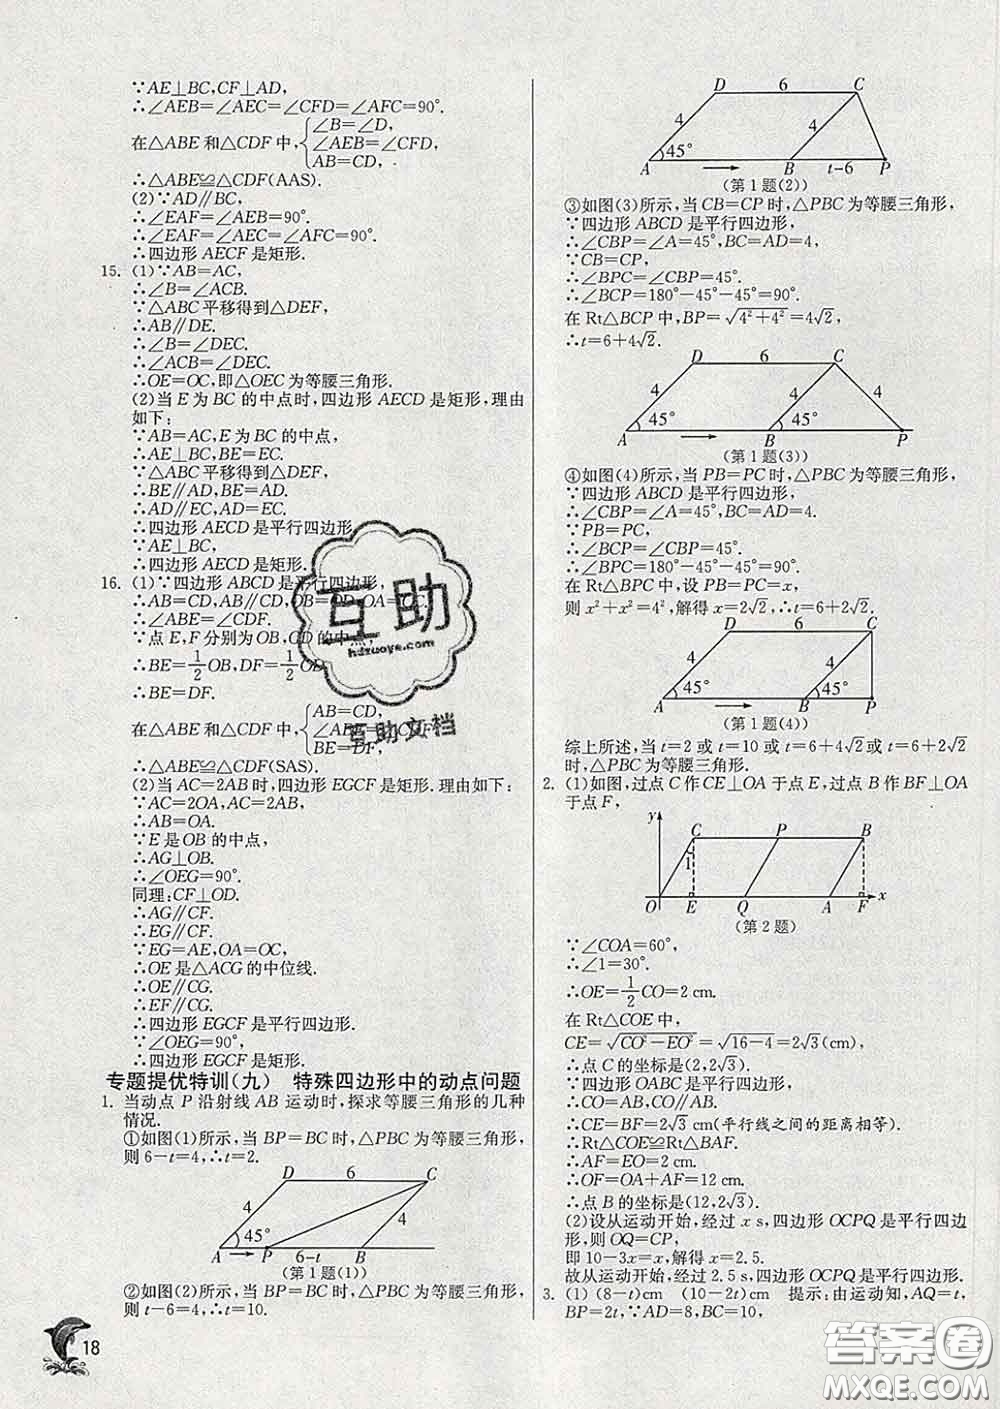 ∵AE⊥BC,CF⊥AD,
∴∠AEB=∠AEC=∠CFD=∠AFC=90°.
在△ABE和△CDF中,{∠B=∠D,
∠AEB=∠CFD,
AB=CD,
∴△ABE≌△CDF(AAS).
(2)∵AD∥BC,
∴∠EAF=∠AEB=90°.
∴∠EAF=∠AEC=∠AFC=90°.
∴四边形AECF是矩形.
15. (1)∵AB=AC,
∴∠B=∠ACB.
∵△ABC平移得到△DEF,
∴AB∥DE.
∴∠B=∠DEC.
∴∠ACB=∠DEC.
∴OE=OC,即△OEC为等腰三角形.
(2)当E为BC的中点时,四边形AECD是矩形,理由
如下:
∵AB=AC,E为BC的中点,
∴AE⊥BC,BE=EC.
∵△ABC平移得到△DEF,
∴BE∥AD,BE=AD.
∴AD∥EC,AD=EC.
∴四边形AECD是平行四边形.
∵AE⊥BC,
∴四边形AECD是矩形.
16. (1)∵四边形ABCD是平行四边形,
∴AB=CD,AB∥CD,OB=OD,OA=OC.
∴∠ABE=∠CDF.
∵点E,F分别为OB,OD的中点,
∴BE=1/2OB,DF=1/2OD.
∴BE=DF.
在△ABE和△CDF中,{AB=CD,
∠ABE=∠CDF,
BE=DF,
∴△ABE≌△CDF(SAS).
(2)当AC=2AB时,四边形EGCF是矩形.理由如下:
∵AC=2OA,AC=2AB,
∴AB=OA.
∵E是OB的中点,
∴AG⊥OB.
∴∠OEG=90°.
同理:CF⊥OD.
∴AG∥CF.
∴EG∥CF.
∵EG=AE,OA=OC,
∴OE是△ACG的中位线.
∴OE∥CG.
∴EF∥CG.
∴四边形EGCF是平行四边形.
∵∠OEG=90°,
∴四边形EGCF是矩形.
专题提优特训(九) 特殊四边形中的动点问题
1. 当动点P沿射线AB运动时,探求等腰三角形的几种
情况.
①如图(1)所示,当BP=BC时,△PBC为等腰三角形,
则6-t=4,∴t=2.
D 6 C
4 4
45°
A P 6-t B
(第1题(1))
②如图(2)所示,当BP=BC时,△PBC为等腰三角形,
则t-6=4,∴t=10.
D 6 C
4 4
45°
A B t-6 P
(第1题(2))
③如图(3)所示,当CB=CP时,△PBC为等腰三角形,
∵四边形ABCD是平行四边形,
∴∠CBP=∠A=45°,BC=AD=4,
∵CB=CP,
∴∠BPC=∠CBP=45°.
∴∠BCP=180°-45°-45°=90°.
在Rt△BCP中,BP=√(4²+4²)=4√2,
∴t=6+4√2.
D 6 C
4 4 4
45° 45°
A B P
(第1题(3))
④如图(4)所示,当PB=PC时,△PBC为等腰三角形,
∵四边形ABCD是平行四边形,
∴∠CBP=∠A=45°,BC=AD=4.
∵PB=PC,
∴∠BCP=∠CBP=45°.
∴∠BPC=180°-45°-45°=90°.
在Rt△BPC中,设PB=PC=x,
则x²+x²=4²,解得x=2√2,∴t=6+2√2.
D 6 C
4 4
45° 45°
A B P
(第1题(4))
综上所述,当t=2或t=10或t=6+4√2或t=6+2√2
时,△PBC为等腰三角形.
2. (1)如图,过点C作CE⊥OA于点E,过点B作BF⊥OA
于点F,
y C P B
1
O E Q A F x
(第2题)
∵∠COA=60°,
∴∠1=30°.
∴OE=1/2CO=2 cm.
在Rt△COE中,
CE=√(CO²-EO²)=√(16-4)=2√3(cm),
∴点C的坐标是(2,2√3).
∵四边形OABC是平行四边形,
∴CO=AB,CO∥AB.
∴CE=BF=2√3 cm(平行线之间的距离相等).
∴Rt△COE≌Rt△BAF.
∴AF=EO=2 cm.
∴OF=OA+AF=12 cm.
∴点B的坐标是(12,2√3).
(2)设从运动开始,经过x s,四边形OCPQ是平行四边
形,则OQ=CP,
即10-3x=x,解得x=2.5.
故从运动开始,经过2.5 s,四边形OCPQ是平行四边形.
3. (1) (8-t)cm (10-2t)cm 提示:由运动知,AQ=t,
BP=2t,∵AD=8,BC=10,
18
互助
hdzuoye.com
互助文档
答案圈
MXQE.COM